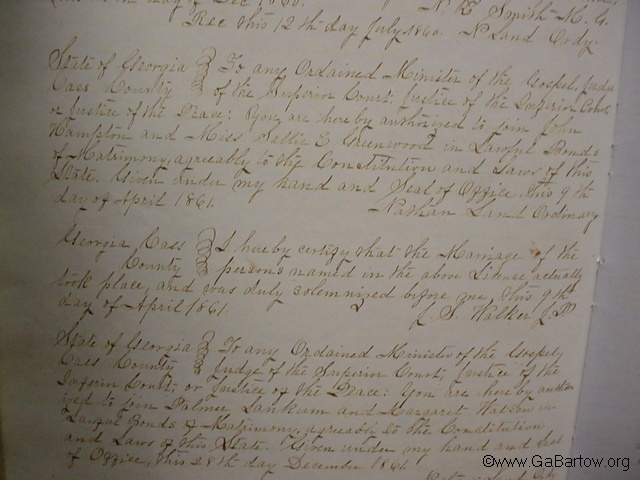 day of Dec 1860. N E Smith M. G.
Rec this 12th day July 1860. N Land Ordy.
State of Georgia } To any Ordained Minister of the Gospel, Judge
Cass County } of the Superior Court, Justice of the Inferior Court
or Justice of the Peace: You are hereby authorized to join John
Hampton and Miss Sallie E Greenwood in Lawful Bonds
of Matrimony, agreeably to the Constitution and Laws of this
State. Given under my hand and Seal of Office, this 9th
day of April 1861. Nathan Land Ordinary
Georgia Cass } I hereby certify that the Marriage of the
County } persons named in the above License actually
took place, and was duly solemnized before me, this 9th
day of April 1861. J. S. Walker J. P.
State of Georgia } To any Ordained Minister of the Gospel,
Cass County } Judge of the Superior Court, Justice of the
Inferior Court, or Justice of the Peace: You are hereby author
ized to join Palmer Lankum and Margaret Watson in
Lawful Bonds of Matrimony, agreeably to the Constitution
and Laws of this State. Given under my hand and Seal
of Office, this 28th day December 1861.
©www.GaBartow.org